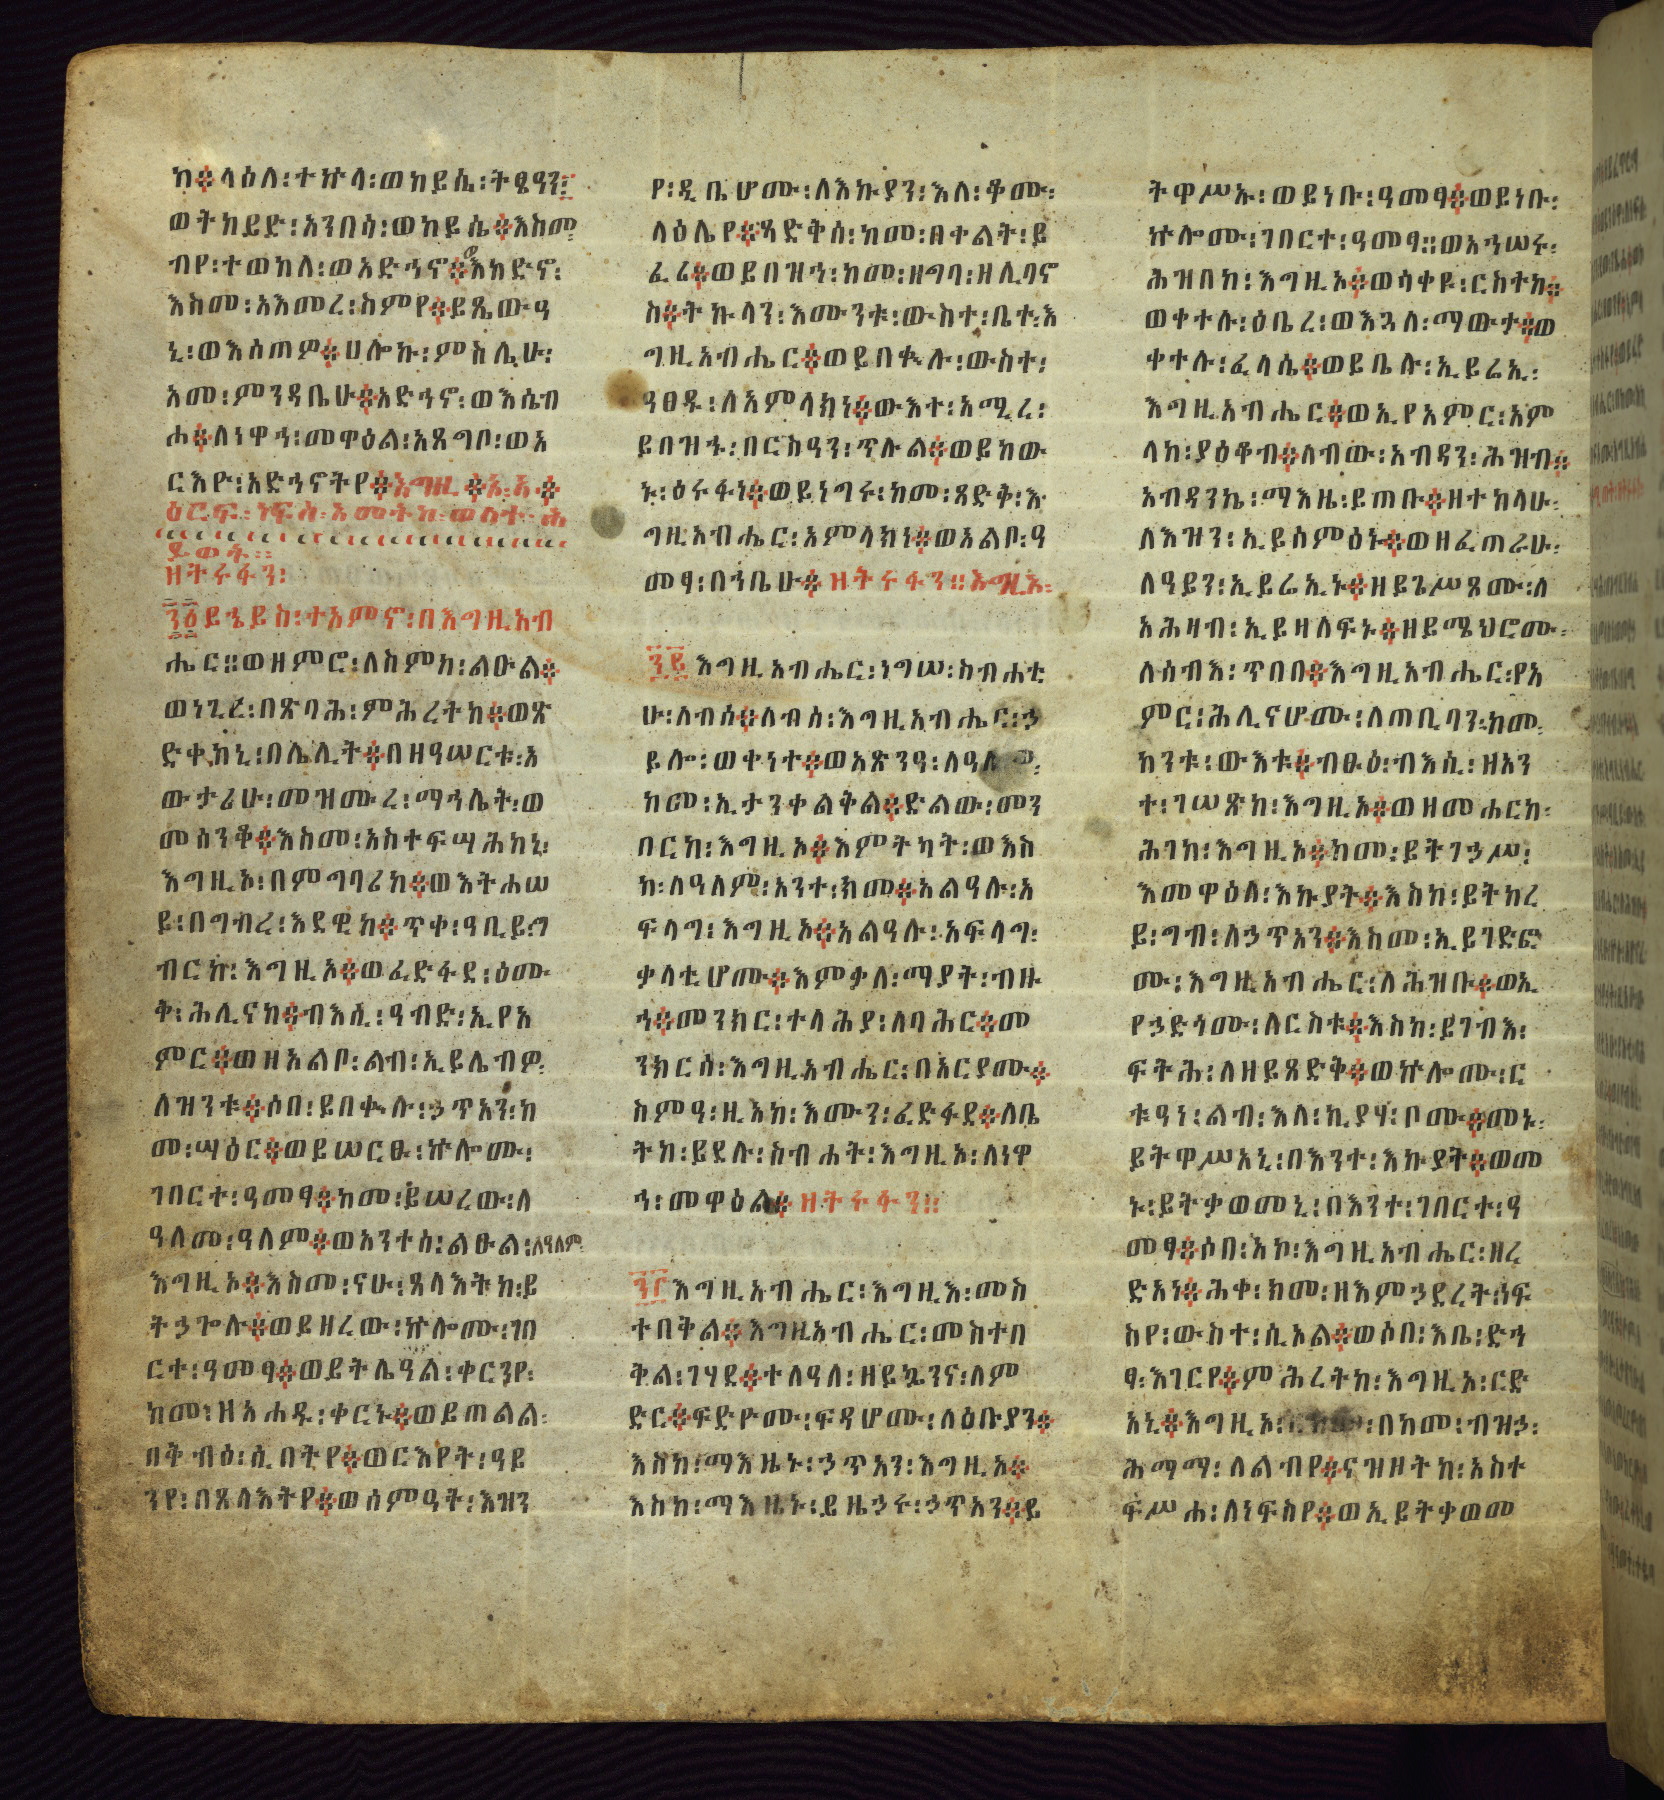 ከ፨ላዕለ፡ተኵላ፡ወከይሲ፡ትፄዓን፡
ወትከይድ፡አንበሳ፡ወከይሴ፨እስመ፡
ብየ፡ተወከለ፡ወአድኅኖ፨እከድኖ፡
እስመ፡አእመረ፡ስምየ፨ይጼውዓ
ኒ፡ወእሰጠዎ፨ሀሎኩ፡ምስሌሁ፡
አመ፡ምንዳቤሁ፨አድኅኖ፡ወእሴብ
ሖ፨ለነዋኅ፡መዋዕል፡አጸግቦ፡ወአ
ርእዮ፡አድኅኖትየ፨
ዘትሩፋን፡
፺፩ይኄይስ፡ተአምኖ፡በእግዚአብ
ሔር፡፡ወዘምሮ፡ለስምከ፡ልዑል፨
ወነጊረ፡በጽባሕ፡ምሕረትከ፨ወጽ
ድቀከኒ፡በሌሊት፨በዘዓሠርቱ፡አ
ውታሪሁ፡መዝሙረ፡ማኅሌት፡ወ
መሰንቆ፨እስመ፡አስተፍሣሕከኒ፡
እግዚኦ፡በምግባሪከ፨ወእትሐሠ
ይ፡በግብረ፡እደዊከ፨ጥቀ፡ዓቢይ፡ግ
ብርከ፡እግዚኦ፨ወፈድፋደ፡ዕሙ
ቅ፡ሕሊናከ፨ብእሲ፡ዓብድ፡ኢየአ
ምር፨ወዘአልቦ፡ልብ፡ኢይሌብዎ፡
ለዝንቱ፨ሶበ፡ይበቍሉ፡ኃጥአን፡ከ
መ፡ሣዕር፨ወይሠርፁ፡ኵሎሙ፡
ገበርተ፡ዓመፃ፨ከመ፡ይሠረው፡ለ
ዓለመ፡ዓለም፨ወአንተሰ፡ልዑል፡ለዓለም፡
እግዚኦ፨እስመ፡ናሁ፡ጸላእትከ፡ይ
ትኃጐሉ፨ወይዘረው፡ኵሎሙ፡ገበ
ርተ፡ዓመፃ፨ወይትሌዓል፡ቀርንየ፡
ከመ፡ዘአሐዱ፡ቀርኑ፨ወይጠልል፡
በቅብዕ፡ሲበትየ፨ወርእየት፡ዓይ
ንየ፡በጸላእትየ፨ወሰምዓት፡እዝን
የ፡ዲቤሆሙ፡ለእኩያን፡እለ፡ቆሙ፡
ላዕሌየ፨ጻድቅሰ፡ከመ፡በቀልት፡ይ
ፈሪ፨ወይበዝኅ፡ከመ፡ዘግባ፡ዘሊባኖ
ስ፨ትኩላን፡እሙንቱ፡ውስተ፡ቤተ፡እ
ግዚአብሔር፨ወይበቍሉ፡ውስተ፡
ዓፀዱ፡ለአምላክነ፨ውእተ፡አሚረ፡
ይበዝኁ፡በርስዓን፡ጥሉል፨ወይከው
ኑ፡ዕሩፋነ፨ወይነግሩ፡ከመ፡ጻድቅ፡እ
ግዚአብሔር፡አምላክነ፨ወአልቦ፡ዓ
መፃ፡በኀቤሁ፨ዘትሩፋን፡፡እግዚእ፡
፺፪እግዚአብሔር፡ነግሠ፡ስብሐቲ
ሁ፡ለብሰ፨ለብሰ፡እግዚአብሔር፡ኃ
ይሎ፡ወቀነተ፨ወአጽንዓ፡ለዓለም፡
ከመ፡ኢታንቀልቅል፨ድልው፡መን
በርከ፡እግዚኦ፨እምትካት፡ወእስ
ከ፡ለዓለም፡አንተ፡ክመ፨አልዓሉ፡አ
ፍላግ፡እግዚኦ፨አልዓሉ፡አፍላግ፡
ቃላቲሆሙ፨እምቃለ፡ማያት፡ብዙ
ኅ፨መንክር፡ተላሕያ፡ለባሕር፨መ
ንክርሰ፡እግዚአብሔር፡በአርያሙ፨
ስምዓ፡ዚአከ፡እሙን፡ፈድፋደ፨ለቤ
ትከ፡ይደሉ፡ስብሐት፡እግዚኦ፡ለነዋ
ኅ፡መዋዕል፨ዘትሩፋን፡፡
፺፫እግዚአብሔር፡እግዚእ፡መስ
ተበቅል፨እግዚአብሔር፡መስተበ
ቅል፡ገሃደ፨ተለዓለ፡ዘይኴንና፡ለም
ድር፨ፍድዮሙ፡ፍዳሆሙ፡ለዕቡያን፨
እስከ፡ማእዜኑ፡ኃጥአን፡እግዚኦ፨
እስከ፡ማእዜኑ፡ይዜኃሩ፡ኃጥአን፨ይ
ትዋሥኡ፡ወይነቡ፡ዓመፃ፨ወይነቡ፡
ኵሎሙ፡ገበርተ፡ዓመፃ፡፡ወአኅሠሩ፡
ሕዝበከ፡እግዚኦ፨ወሳቀዩ፡ርስተከ፨
ወቀተሉ፡ዕቤረ፡ወእጓለ፡ማውታ፨ወ
ቀተሉ፡ፈላሴ፨ወይቤሉ፡ኢይሬኢ፡
እግዚአብሔር፨ወኢየአምር፡አም
ላከ፡ያዕቆብ፨ለብው፡አብዳን፡ሕዝብ፨
አብዳንኬ፡ማእዜ፡ይጠቡ፨ዘተከላሁ፡
ለእዝን፡ኢይሰምዕኑ፨ወዘፈጠራሁ፡
ለዓይን፡ኢይሬኢኑ፨ዘይጌሥጾሙ፡ለ
አሕዛብ፡ኢይዛለፍኑ፨ዘይሜህሮሙ፡
ለሰብእ፡ጥበበ፨እግዚአብሔር፡የአ
ምር፡ሕሊናሆሙ፡ለጠቢባን፡ከመ፡
ከንቱ፡ውእቱ፨ብፁዕ፡ብእሲ፡ዘአን
ተ፡ገሠጽከ፡እግዚኦ፨ወዘመሐርከ፡
ሕገከ፡እግዚኦ፨ከመ፡ይትገኃሥ፡
እመዋዕለ፡እኩያት፨እስከ፡ይትከረ
ይ፡ግብ፡ለኃጥአን፨እስመ፡ኢይገድፎ
ሙ፡እግዚአብሔር፡ለሕዝቡ፨ወኢ
የኃድጎሙ፡ለርስቱ፨እስከ፡ይገብእ፡
ፍትሕ፡ለዘይጸድቅ፨ወኵሎሙ፡ር
ቱዓነ፡ልብ፡እለ፡ኪያሃ፡ቦሙ፨መኑ፡
ይትዋሥአኒ፡በእንተ፡እኩያት፨ወመ
ኑ፡ይትቃወመኒ፡በእንተ፡ገበርተ፡ዓ
መፃ፨ሶበ፡አኮ፡እግዚአብሔር፡ዘረ
ድአኒ፨ሕቀ፡ክመ፡ዘእምኃደረት፡ነፍ
ስየ፡ውስተ፡ሲኦል፨ወሶበ፡እቤ፡ድኅ
ፃ፡እገርየ፨ምሕረትከ፡እግዚኦ፡ርድ
አኒ፨እግዚኦ፡በከመ፡ብዝኃ፡
ሕማማ፡ለልብየ፨ናዝዞትከ፡አስተ
ፍሥሐ፡ለነፍስየ፨ወኢይትቃወመ